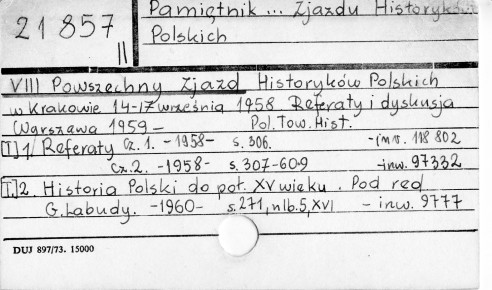 21 857 II
Pamiętnik... Zjazdu Historyków
Polskich
VIII Powszechny Zjazd Historyków Polskich
w Krakowie 14-17 września 1958. Referaty i dyskusja
Warszawa 1959 - Pol. Tow. Hist.
[T.] 1 Referaty cz. 1. -1958- s. 306. - inw. 118 802
cz. 2. -1958- s. 307-609 - inw. 97332
[T.] 2. Historia Polski do poł. XV wieku. Pod red
G. Labudy. -1960- s. 271, nlb. 5, XVI - inw. 9777
DUJ 897/73. 15000